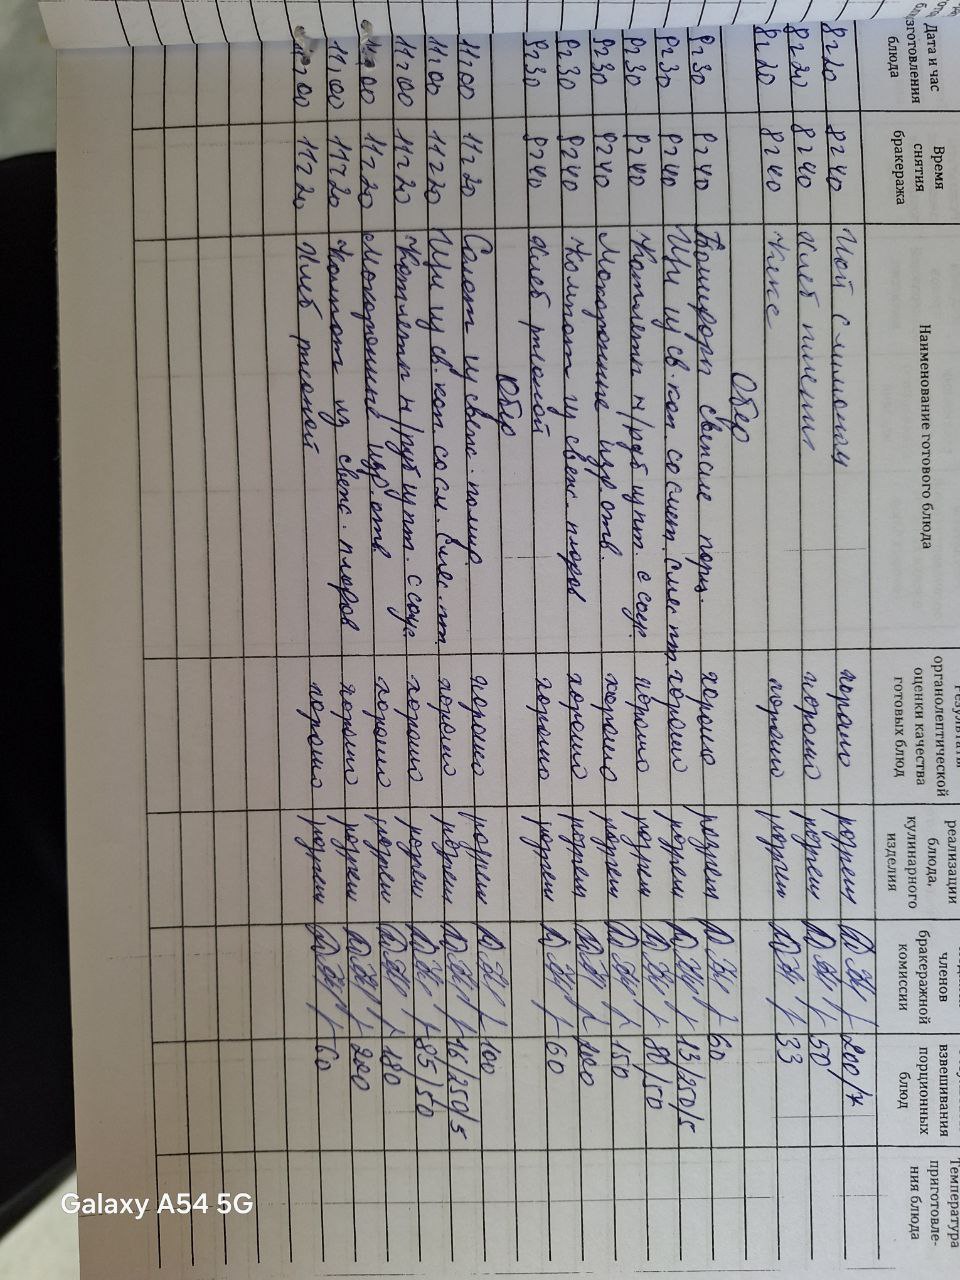 Дата и час изготовления блюда Время снятия бракеража Наименование готового блюда Результаты органолептической оценки качества готовых блюд реализации блюда, кулинарного изделия членов бракеражной комиссии взвешивания порционных блюд Температура приготовле-ния блюда
8г20 8г40 Чай с лимоном хорошо разреш 200/7
8г20 8г40 Хлеб пшенич хорошо разреш 50
8г20 8г40 Кекс хорошо разреш 33
Обед
9г30 9г40 Помидоры свежие порц. хорошо разреш 60
9г30 9г40 Щи из св. кап. со смет. хорошо разреш 13/250/5
9г30 9г40 Котлета н/руб хорошо разреш 80/50
9г30 9г40 Макаронные изд. отв. хорошо разреш 150
9г30 9г40 Компот из свеж. плодов хорошо разреш 200
9г30 9г40 Хлеб ржаной хорошо разреш 60
Обед
11г00 11г20 Салат из свеж. помид. хорошо разреш 100
11г00 11г20 Щи из св. кап. со см. хорошо разреш 16/250/5
11г00 11г20 Котлета н/руб с соус. хорошо разреш 85/50
11г00 11г20 Макаронные изд. отв. хорошо разреш 180
11г00 11г20 Компот из свеж. плодов хорошо разреш 200
11г00 11г20 Хлеб ржаной хорошо разреш 60
Galaxy A54 5G